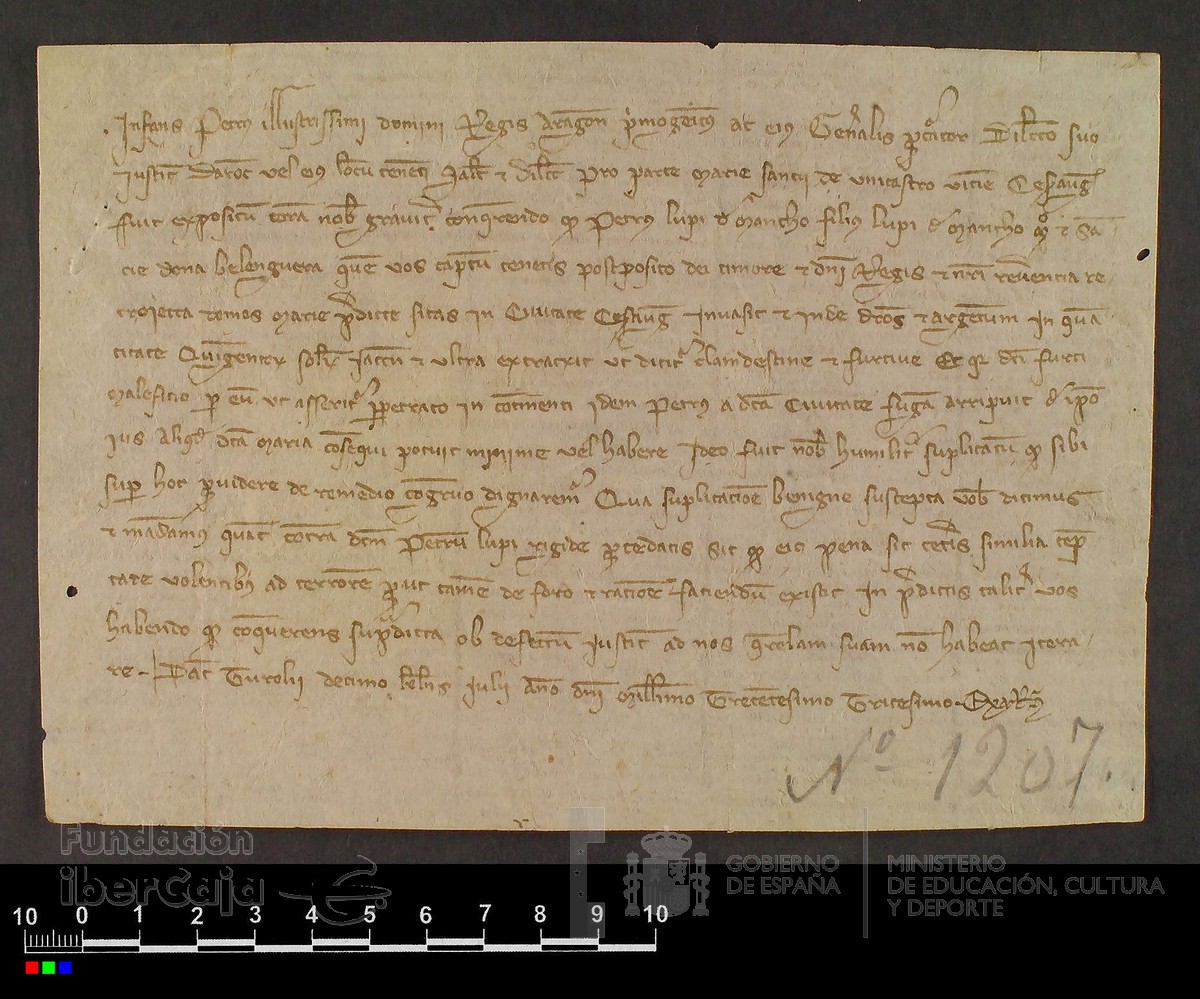 Infans Petrus illustrissimi domini Regis Aragon primogenitus ac eius Generalis procurator Dilecto suo
Justic Daroc vel eius locum tenenti Salt et dilect Pro parte Marie Sancii de Unicastro vicine Cesaraug
fuit expositum coram nobis graviter conquerendo quod Petrus Lupi de Mancho filius Lupi de Mancho quondam et San
cie dona Belenguera quem vos captum tenetis postposito dei timore et domini Regis et nostri reverencia re
troiecta domos Marie predicte sitas in Civitate Cesaraug Invasit et inde draps et argentum in quan
titate Quingentorum solidorum Jaccen et ultra extraxit ut dicitur clamdestine et furtive Et quia dicti furti
maleficio per eum ut asseritur perpetrato in continenti idem Petrus a dicta Civitate fugam arripuit de ipso
ius aliquod dicta Maria consequi potuit minime vel habere Ideo fuit nobis humiliter suplicatum quod sibi
super hoc providere de remedio congruo dignaremur Qua suplicacione benigne suscepta vobis dicimus
et mandamus quatenus contra dictum Petrum Lupi rigide procedatis sic quod eius pena sit ceteris similia temp
tare volentibus ad terrorem prout tamen de foro et racione faciendum existit In predictis taliter vos
habendo quod conquerens supradicta ob defectum iusticie ad nos querelam suam non habeat itera
re Dat Turolii decimo kalendas Julii Anno domini Millesimo Trecentesimo Tricesimo
Nº 1207.
Fundación
iberCaja
GOBIERNO
DE ESPAÑA
MINISTERIO
DE EDUCACIÓN, CULTURA
Y DEPORTE
10 0 1 2 3 4 5 6 7 8 9 10